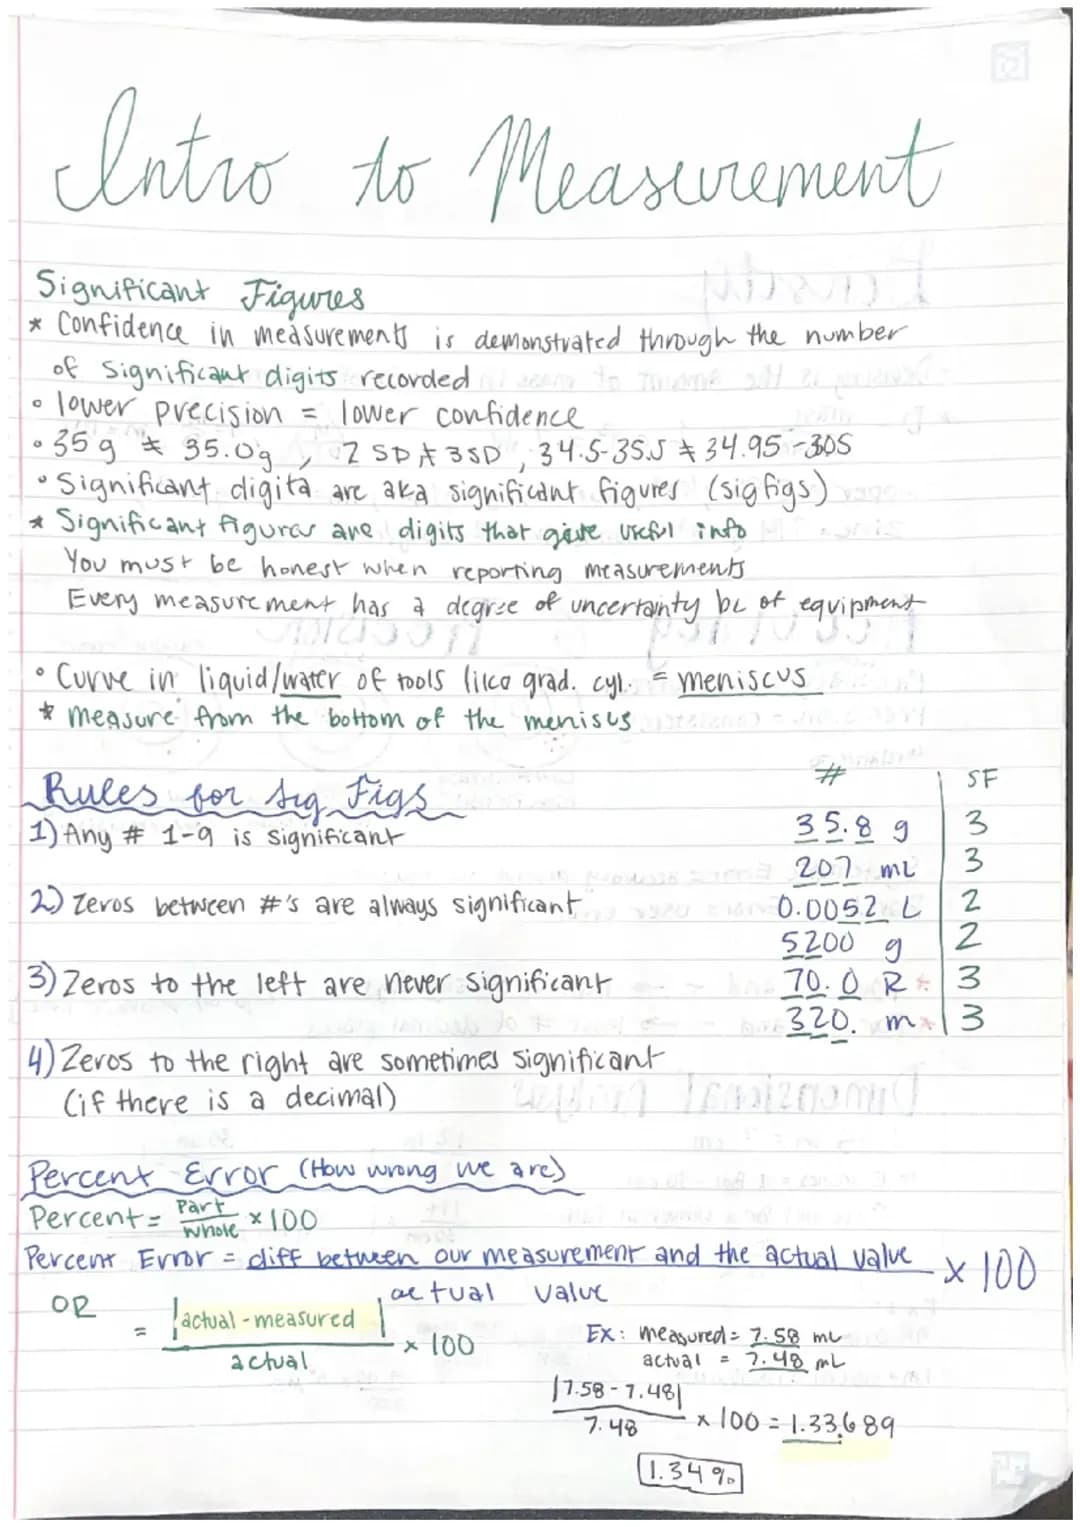 Intro to Measurement
Significant Figures
* Confidence in measurements is demonstrated through the number
of Significant digits recorded
• lower precision = lower confidence
• 35g ≠ 35.0g, 2 SD ≠ 3SD, 34.5-35.5 ≠ 34.95-305
• Significant digita are aka significant figures (sigfigs)
* Significant figures are digits that give useful info
You must be honest when reporting measurements
Every measurement has a degree of uncertainty bc of equipment
• Curve in liquid/water of tools like grad. cyl. = meniscus
* measure from the bottom of the menisus
Rules for Sig Figs
# SF
1) Any # 1-9 is significant
35.8 g 3
207 mL 3
2) Zeros between #'s are always significant
0.0052 L 2
5200 g 2
3) Zeros to the left are never significant
70.0 R * 3
320. m * 3
4) Zeros to the right are sometimes significant
(if there is a decimal)
Percent Error (How wrong we are)
Percent = Part/whole × 100
Percent Error = diff between our measurement and the actual value / actual value × 100
OR = |actual - measured| / actual × 100
Ex: measured = 7.58 mL
actual = 7.48 mL
|7.58 - 7.48| / 7.48 × 100 = 1.33689
1.34%